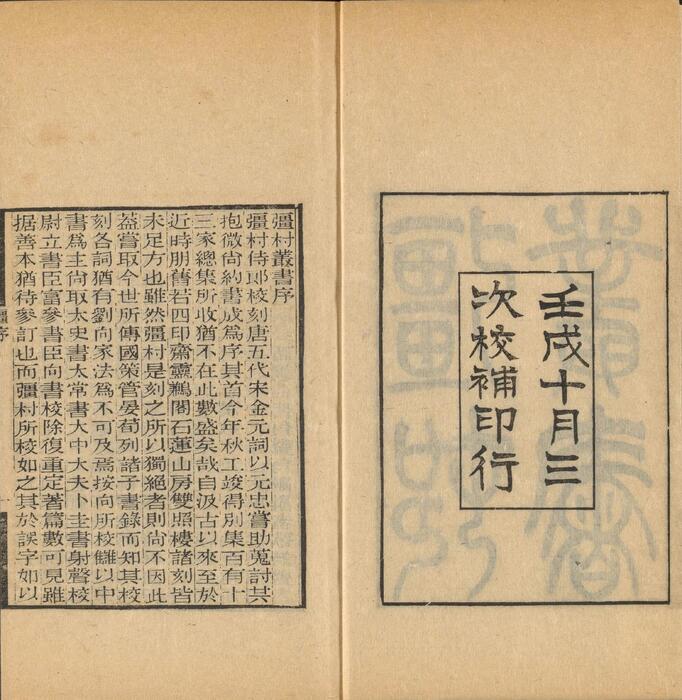 壬戌十月三
次校補印行
彊村叢書序
彊村侍郎校刻唐五代宋金元詞以元忠嘗助蒐討其
抱微尚約書成爲序其首今年秋工竣得別集百有十
三家總集所收猶不在此數盛矣哉自汲古以來至於
近時朋舊若四印齋靈鶼閣石蓮山房雙照樓諸刻皆
未足方也雖然彊村是刻之所以獨絕者則尚不因此
葢嘗取今世所傳國策管晏荀列諸子書錄而知其校
刻各詞猶有劉向家法爲不可及焉按向所校讎以中
書爲主尚取太史書太常書大中大夫卜圭書射聲校
尉立書臣富參書臣向書校除復重定著篇數可見雖
据善本猶待參訂也而彊村所校如之其於誤字如以
彊序